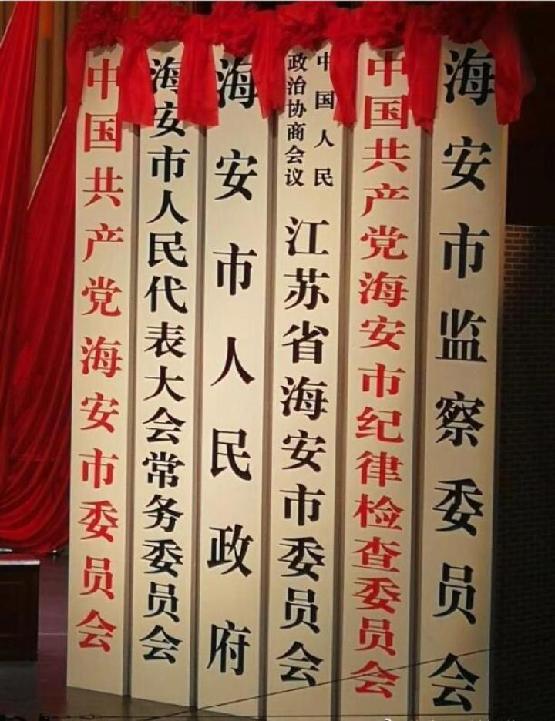 中国共产党海安市委员会
海安市人民代表大会常务委员会
海安市人民政府
中国人民
政治协商会议
江苏省海安市委员会
中国共产党海安市纪律检查委员会
海安市监察委员会